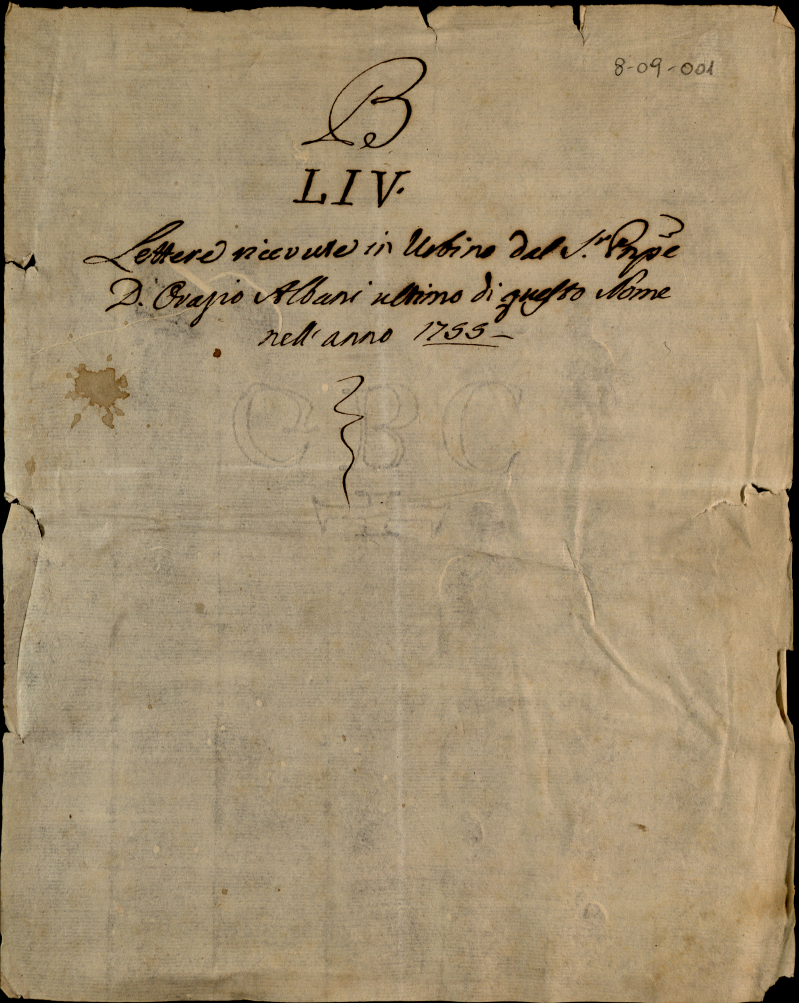 8-09-001
B
LIV.
Lettere ricevute in Urbino dal S.r Pnpe
D. Orazio Albani ultimo di questo Nome
nell' anno 1755
CBC